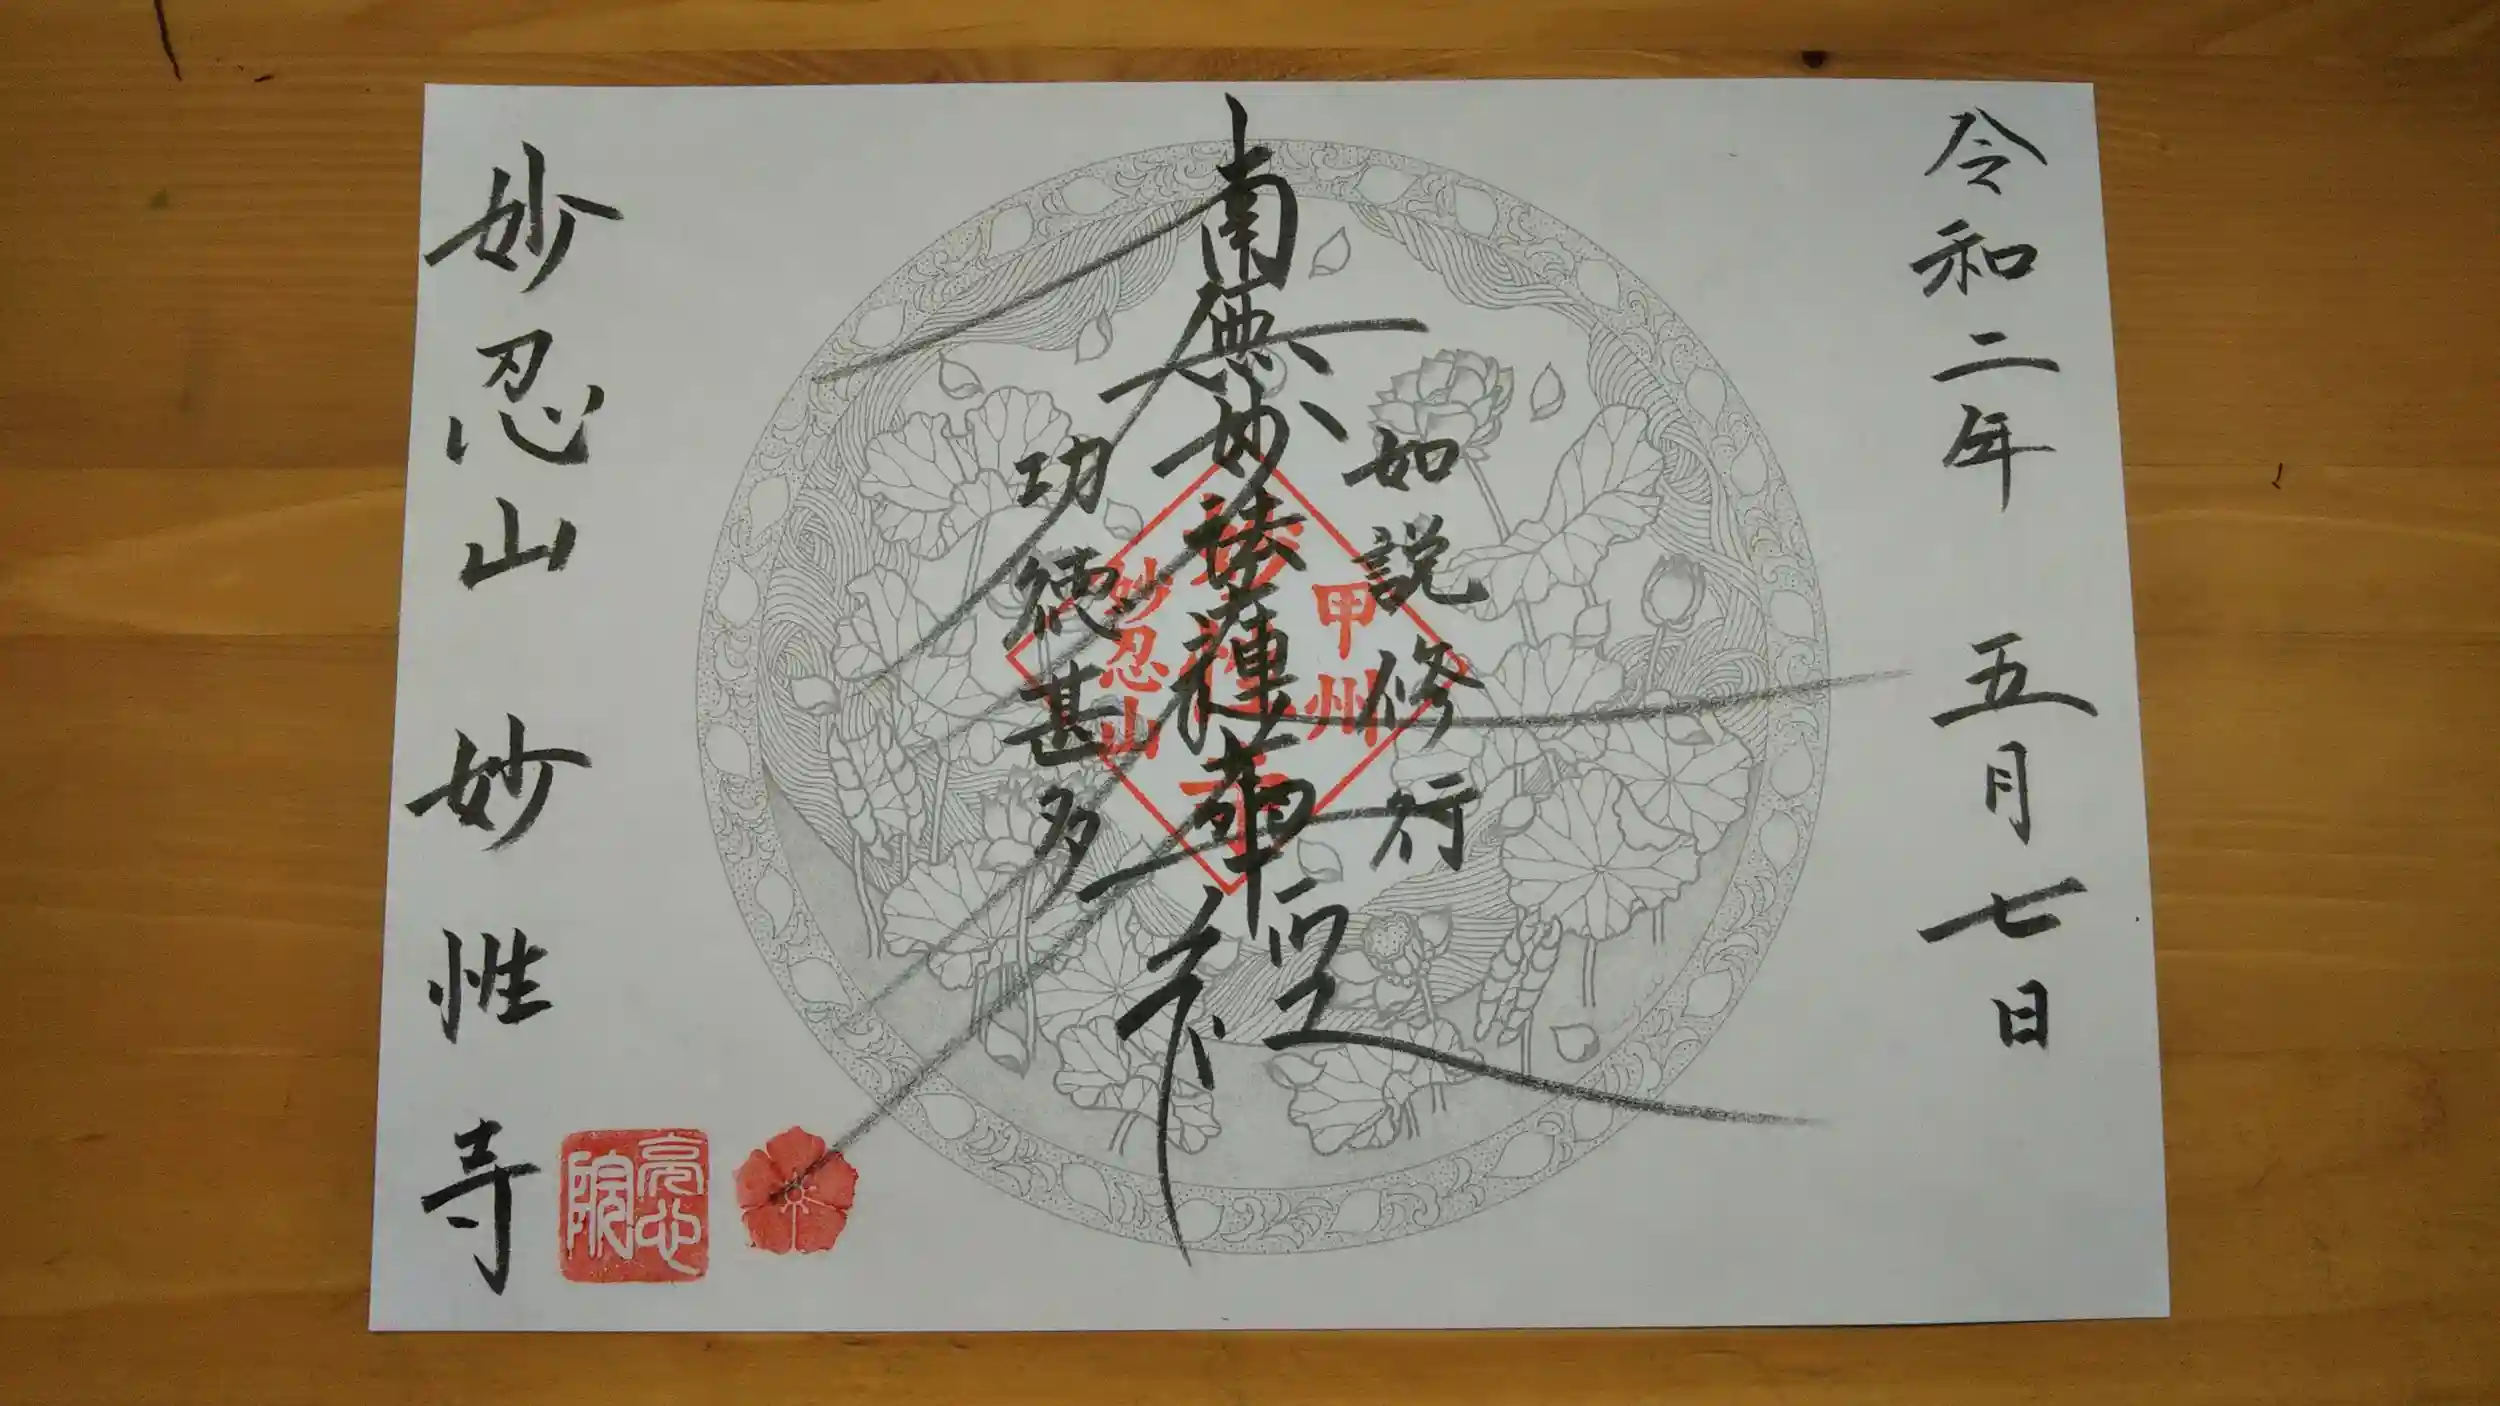 令和二年 五月七日
如説修行
南無妙法蓮華経
功徳甚多
妙忍山 妙性寺
甲州
妙忍山